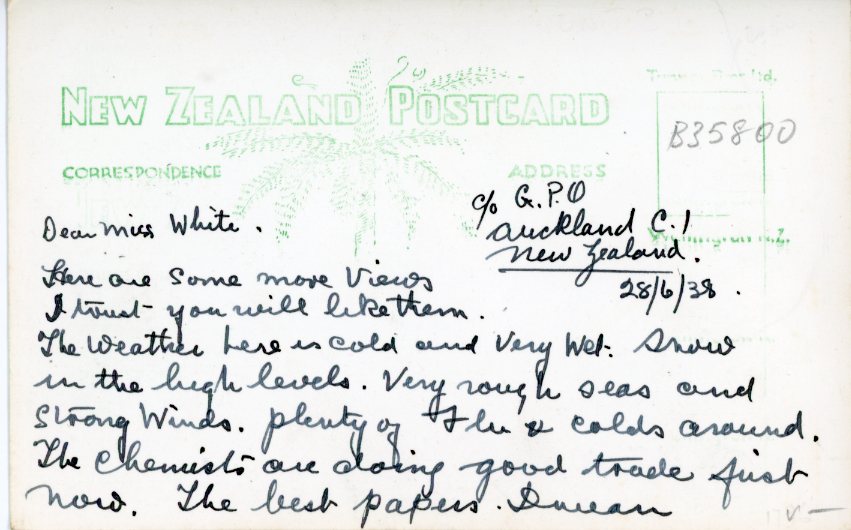 NEW ZEALAND POSTCARD
CORRESPONDENCE
ADDRESS
B35800
c/o G.P.O
Auckland C.1
New Zealand.
28/6/38.
Dear Miss White.
Here are some more Views
I trust you will like them.
The Weather here is cold and Very Wet. Snow
in the high levels. Very rough seas and
Strong Winds. plenty of Flu & colds around.
The Chemists are doing good trade just
now. The best papers. Duncan